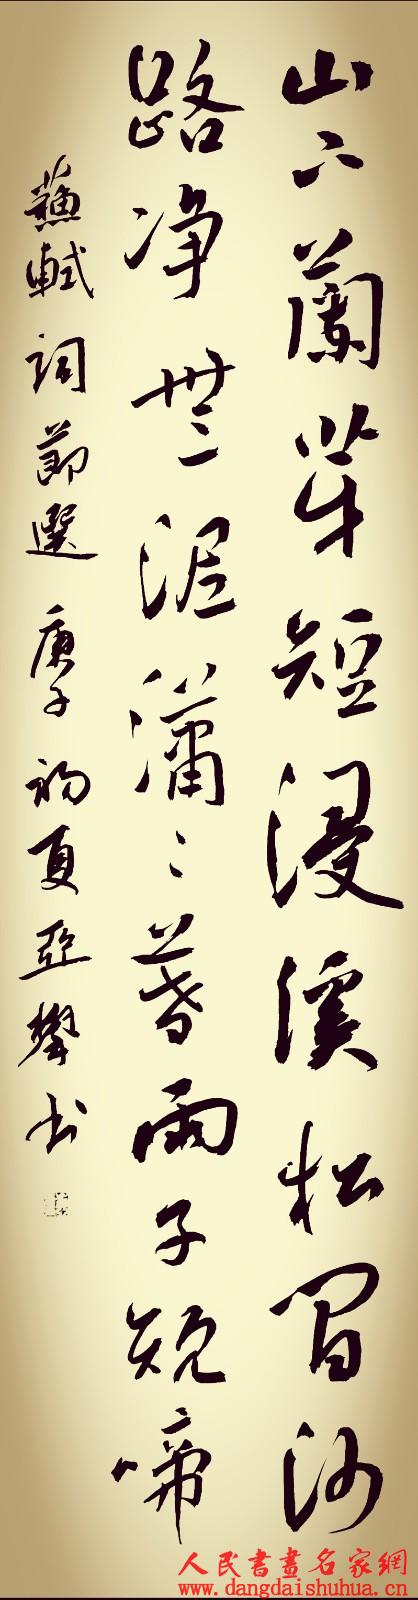 山下蘭芽短浸溪松間沙
路净無泥瀟〻暮雨子規啼
蘇軾詞節選庚子初夏亞书
人民書畫名家網
www.dangdaishuhua.cn